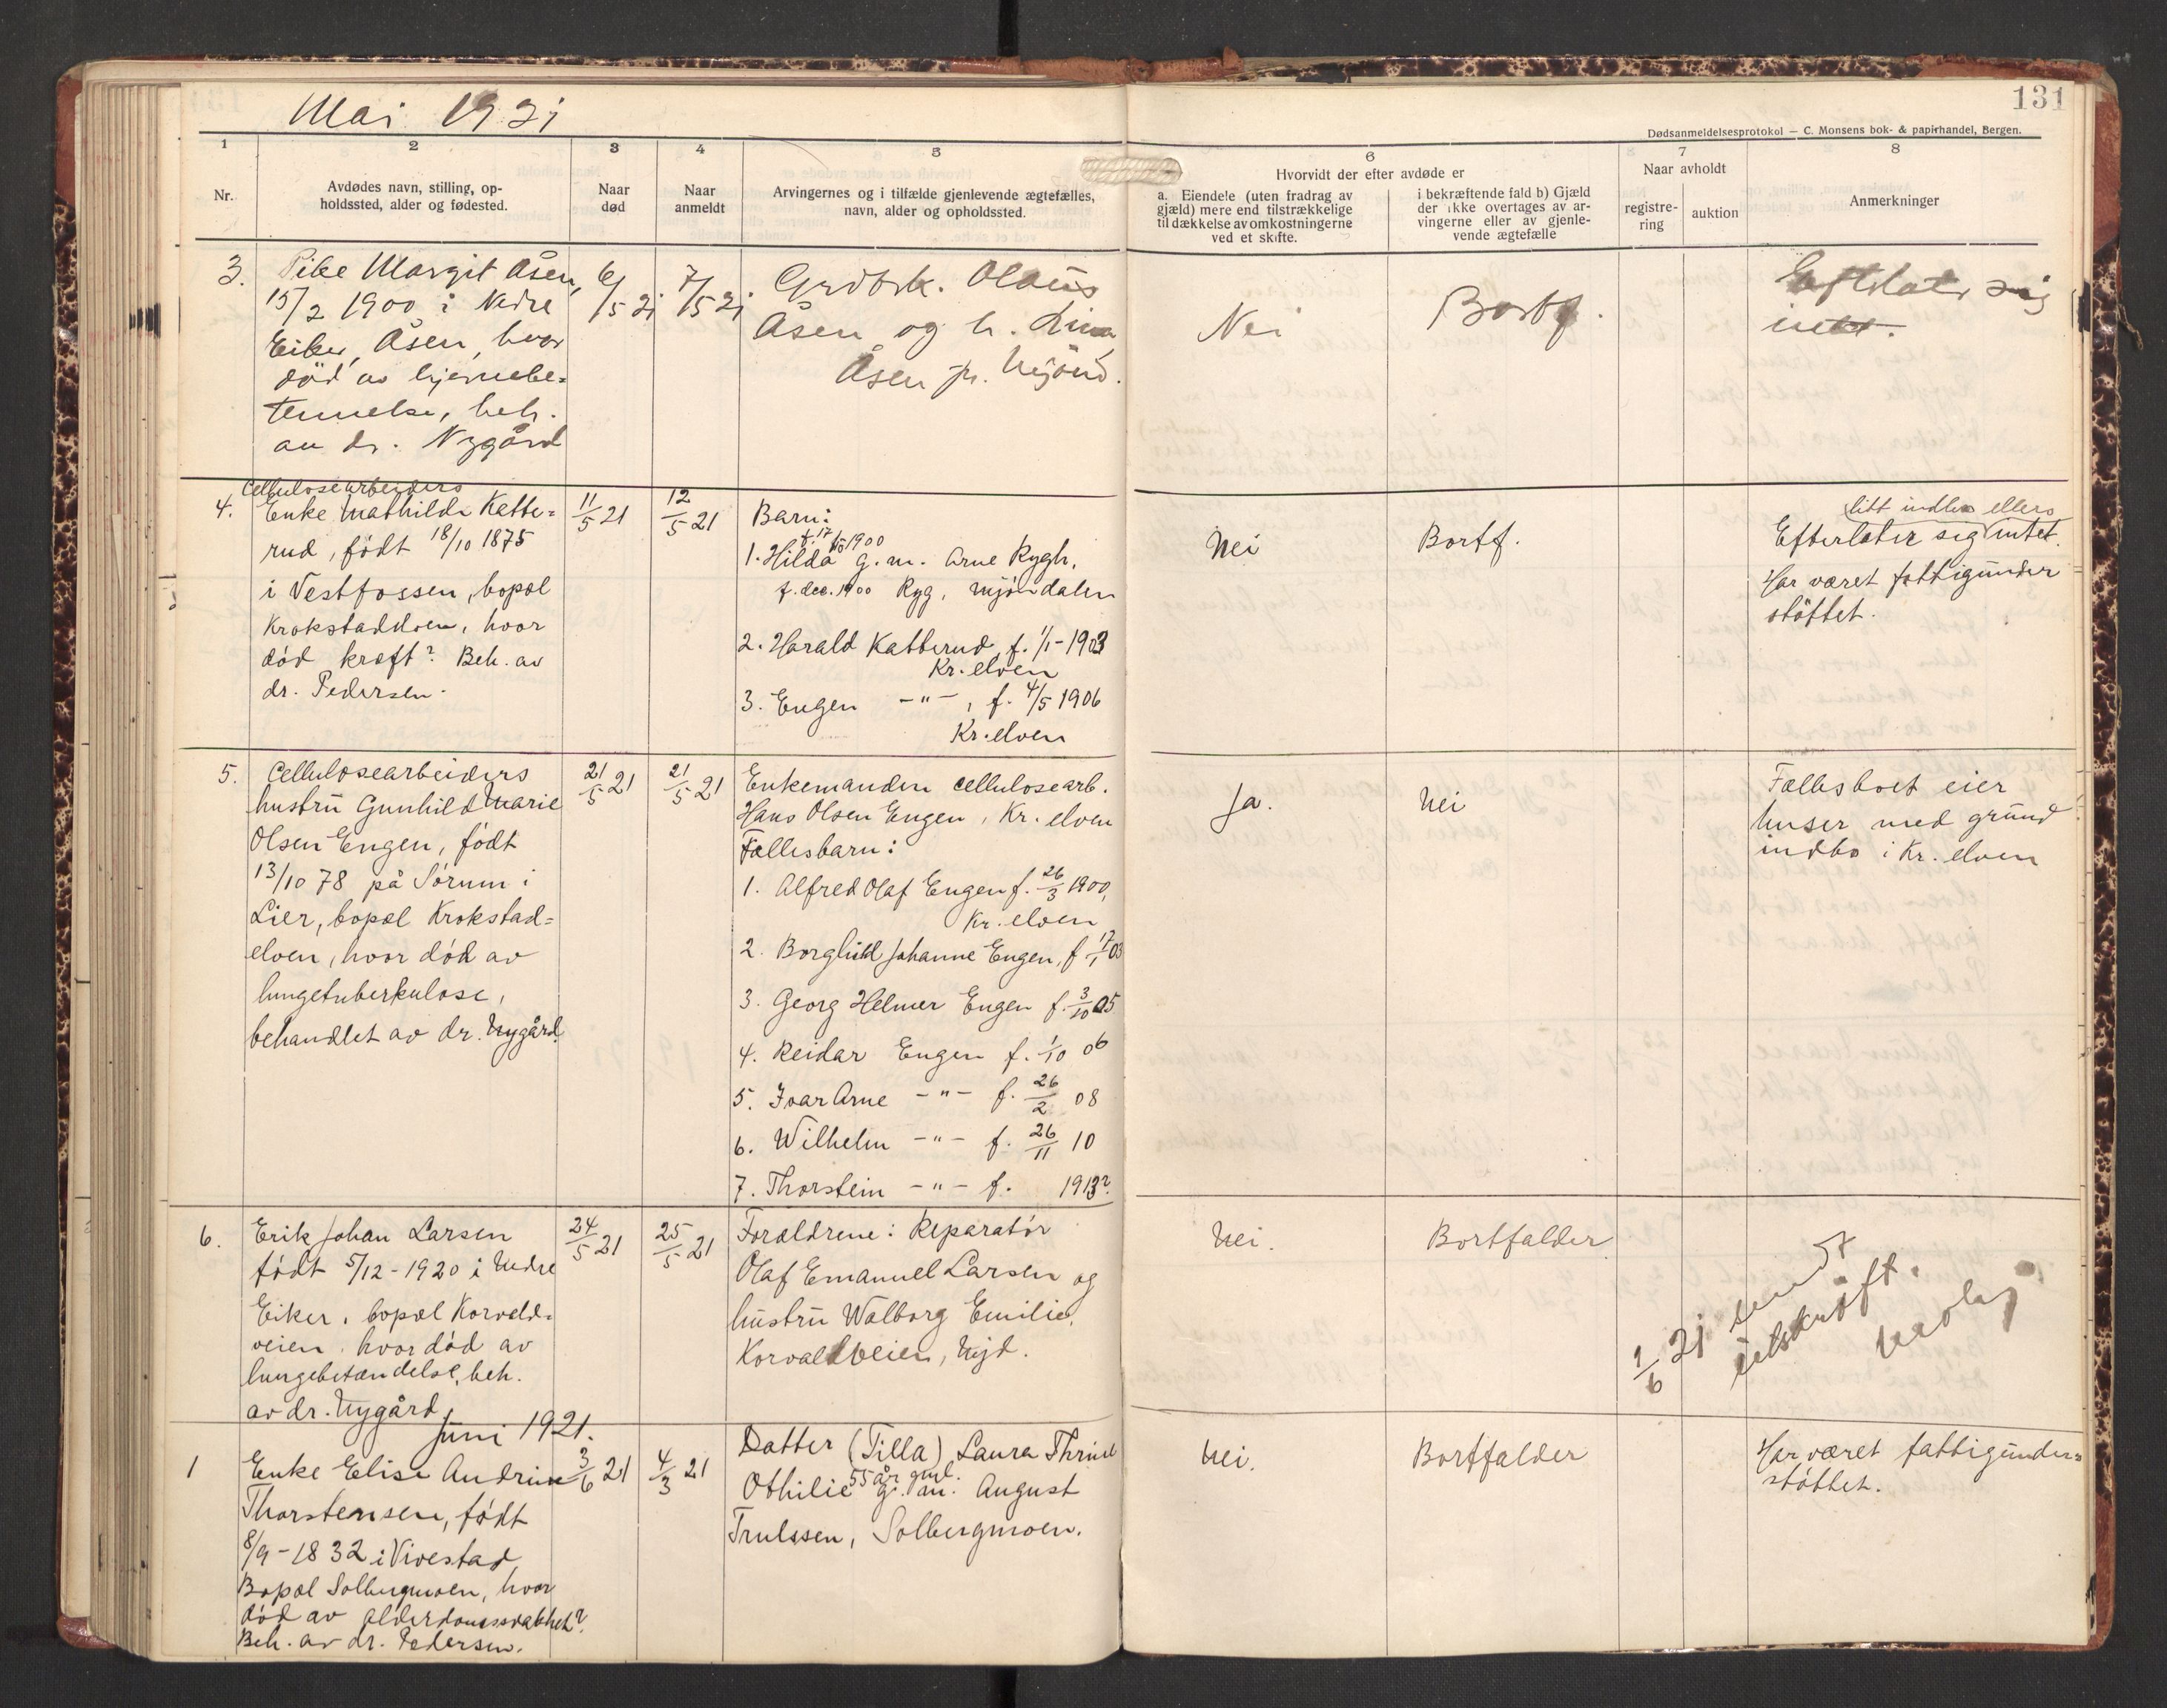 Mai 1921
131
Dødsanmeldelsesprotokol — C. Monsens bok- & papirhandel, Bergen.
1
2
3
4
5
6
7
8
Nr.
Avdødes navn, stilling, op-
holdssted, alder og fødested.
Naar
død
Naar
anmeldt
Arvingernes og i tilfælde gjenlevende ægtefælles,
navn, alder og opholdssted.
Hvorvidt der efter avdøde er
a. Eiendele (uten fradrag av
gjæld) mere end tilstrækkelige
til dækkelse av omkostningerne
ved et skifte.
i bekræftende fald b) Gjæld
der ikke overtages av ar-
vingerne eller av gjenle-
vende ægtefælle
Naar avholdt
registre-
ring
auktion
Anmerkninger
3.
Pike Margit Åsen,
15/2 1900 i Nedre
Eiker, Åsen, hvor
död av hjernebe-
tennelse, beh.
au dr. Nygård
6/5 21
7/5 21
Grdbrk. Olaus
Åsen og h. Lina
Åsen pr. Mjönd.
Nei
Bortf.
Efterlater sig
intet.
4.
Cellulosearbeiders
Enke Mathilde Katte-
rud, født 18/10 1875
i Vestfossen, bopæl
Krokstadelven, hvor
død kræft? Beh. av
dr. Pedersen.
11/5 21
12/5 21
Barn:
1. Hilda g. m. Arne Rygh,
f. dec. 1900 Ryg, Mjøndalen
2. Harald Katterud f. 1/1-1903
Kr. elven
3. Eugen -"- , f. 4/5 1906
Kr. elven
Nei
Bortf.
litt indbo ellers
Efterlater sig intet.
Har været fattigunder
støttet.
5.
Cellulosearbeiders
hustru Gunhild Marie
Olsen Engen, født
13/10 78 på Sørum i
Lier, bopæl Krokstad-
elven, hvor død av
lungetuberkulose,
behandlet av dr. Nygård.
21/5 21
21/5 21
Enkemanden cellulosearb.
Hans Olsen Engen, Kr. elven
Fællesbarn:
1. Alfred Olaf Engen f. 26/3 1900,
Kr. elven
2. Borghild Johanne Engen, f 17/1 03
3. Georg Helmer Engen f. 3/10 05
4. Reidar Engen f. 1/10 06
5. Ivar Arne -"- f. 26/2 08
6. Wilhelm -"- f. 26/11 10
7. Thorstein -"- f. 1913?
Ja.
Nei
Fællesboet eier
huser med grund
indbo i Kr. elven
6.
Erik Johan Larsen
født 5/12-1920 i Nedre
Eiker, bopæl Korvald-
veien, hvor død av
lungebetændelse, beh.
av dr. Nygård
24/5 21
25/5 21
Forældrene: Reparatør
Olaf Emanuel Larsen og
hustru Walborg Emilie,
Korvaldveien, Mjd.
Nei.
Bortfalder
1/6 21 sendt
utskrift.
Juni 1921.
1
Enke Elise Andrine
Thorstensen, født
8/9-1832 i Vivestad
Bopæl Solbergmoen, hvor
død av alderdomssvakhet?
Beh. av dr. Pedersen.
3/6 21
4/3 21
Datter (Tilla) Laura Thrine
Othilie 55 år gml. g. m. August
Trulssen, Solbergmoen.
Nei.
Bortfalder
Har været fattigunder-
støttet.